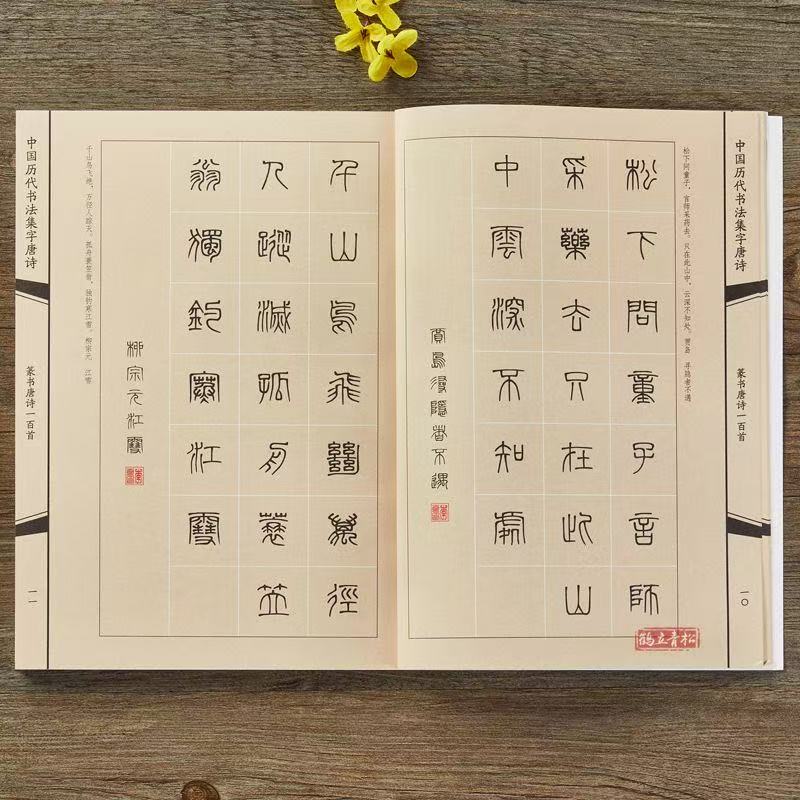 中国历代书法集字唐诗
篆书唐诗一百首
一〇
松下问童子，言师采药去。只在此山中，云深不知处。贾岛 寻隐者不遇
松下問童子言師
采藥去只在此山
中雲深不知處
賈島尋隱者不遇
鶴立青松
千山鳥飛絕萬徑
人蹤滅孤舟蓑笠
翁獨釣寒江雪
柳宗元江雪
千山鸟飞绝，万径人踪灭。孤舟蓑笠翁，独钓寒江雪。柳宗元 江雪
中国历代书法集字唐诗
篆书唐诗一百首
一一